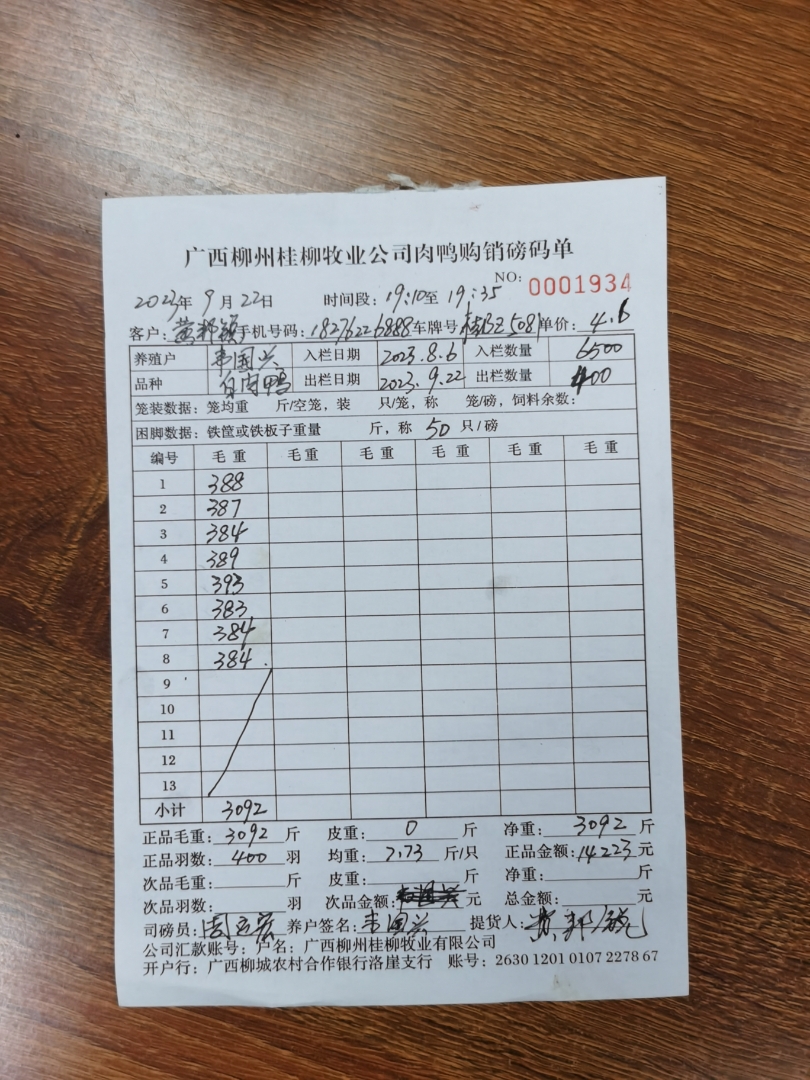 广西柳州桂柳牧业公司肉鸭购销磅码单
NO: 0001934
2023年 9 月 22日 时间段: 19:10至 19:35
客户: 黄邦锐 手机号码: 18276226888 车牌号 桂BZ5081 单价: 4.6
养殖户 韦国兴 入栏日期 2023.8.6 入栏数量 6500
品种 白肉鸭 出栏日期 2023.9.22 出栏数量 400
笼装数据: 笼均重 斤/空笼, 装 只/笼, 称 笼/磅, 饲料余数:
困脚数据: 铁筐或铁板子重量 斤, 称 50 只/磅
编号 毛重 毛重 毛重 毛重 毛重 毛重
1 388
2 387
3 384
4 389
5 393
6 383
7 384
8 384
9
10
11
12
13
小计 3092
正品毛重: 3092 斤 皮重: 0 斤 净重: 3092 斤
正品羽数: 400 羽 均重: 7.73 斤/只 正品金额: 14223 元
次品毛重: 斤 皮重: 斤 净重: 斤
次品羽数: 羽 次品金额: 元 总金额: 元
司磅员: 养户签名: 韦国兴 提货人: 黄邦锐
公司汇款账号: 户名: 广西柳州桂柳牧业有限公司
开户行: 广西柳城农村合作银行洛崖支行 账号: 2630 1201 0107 2278 67